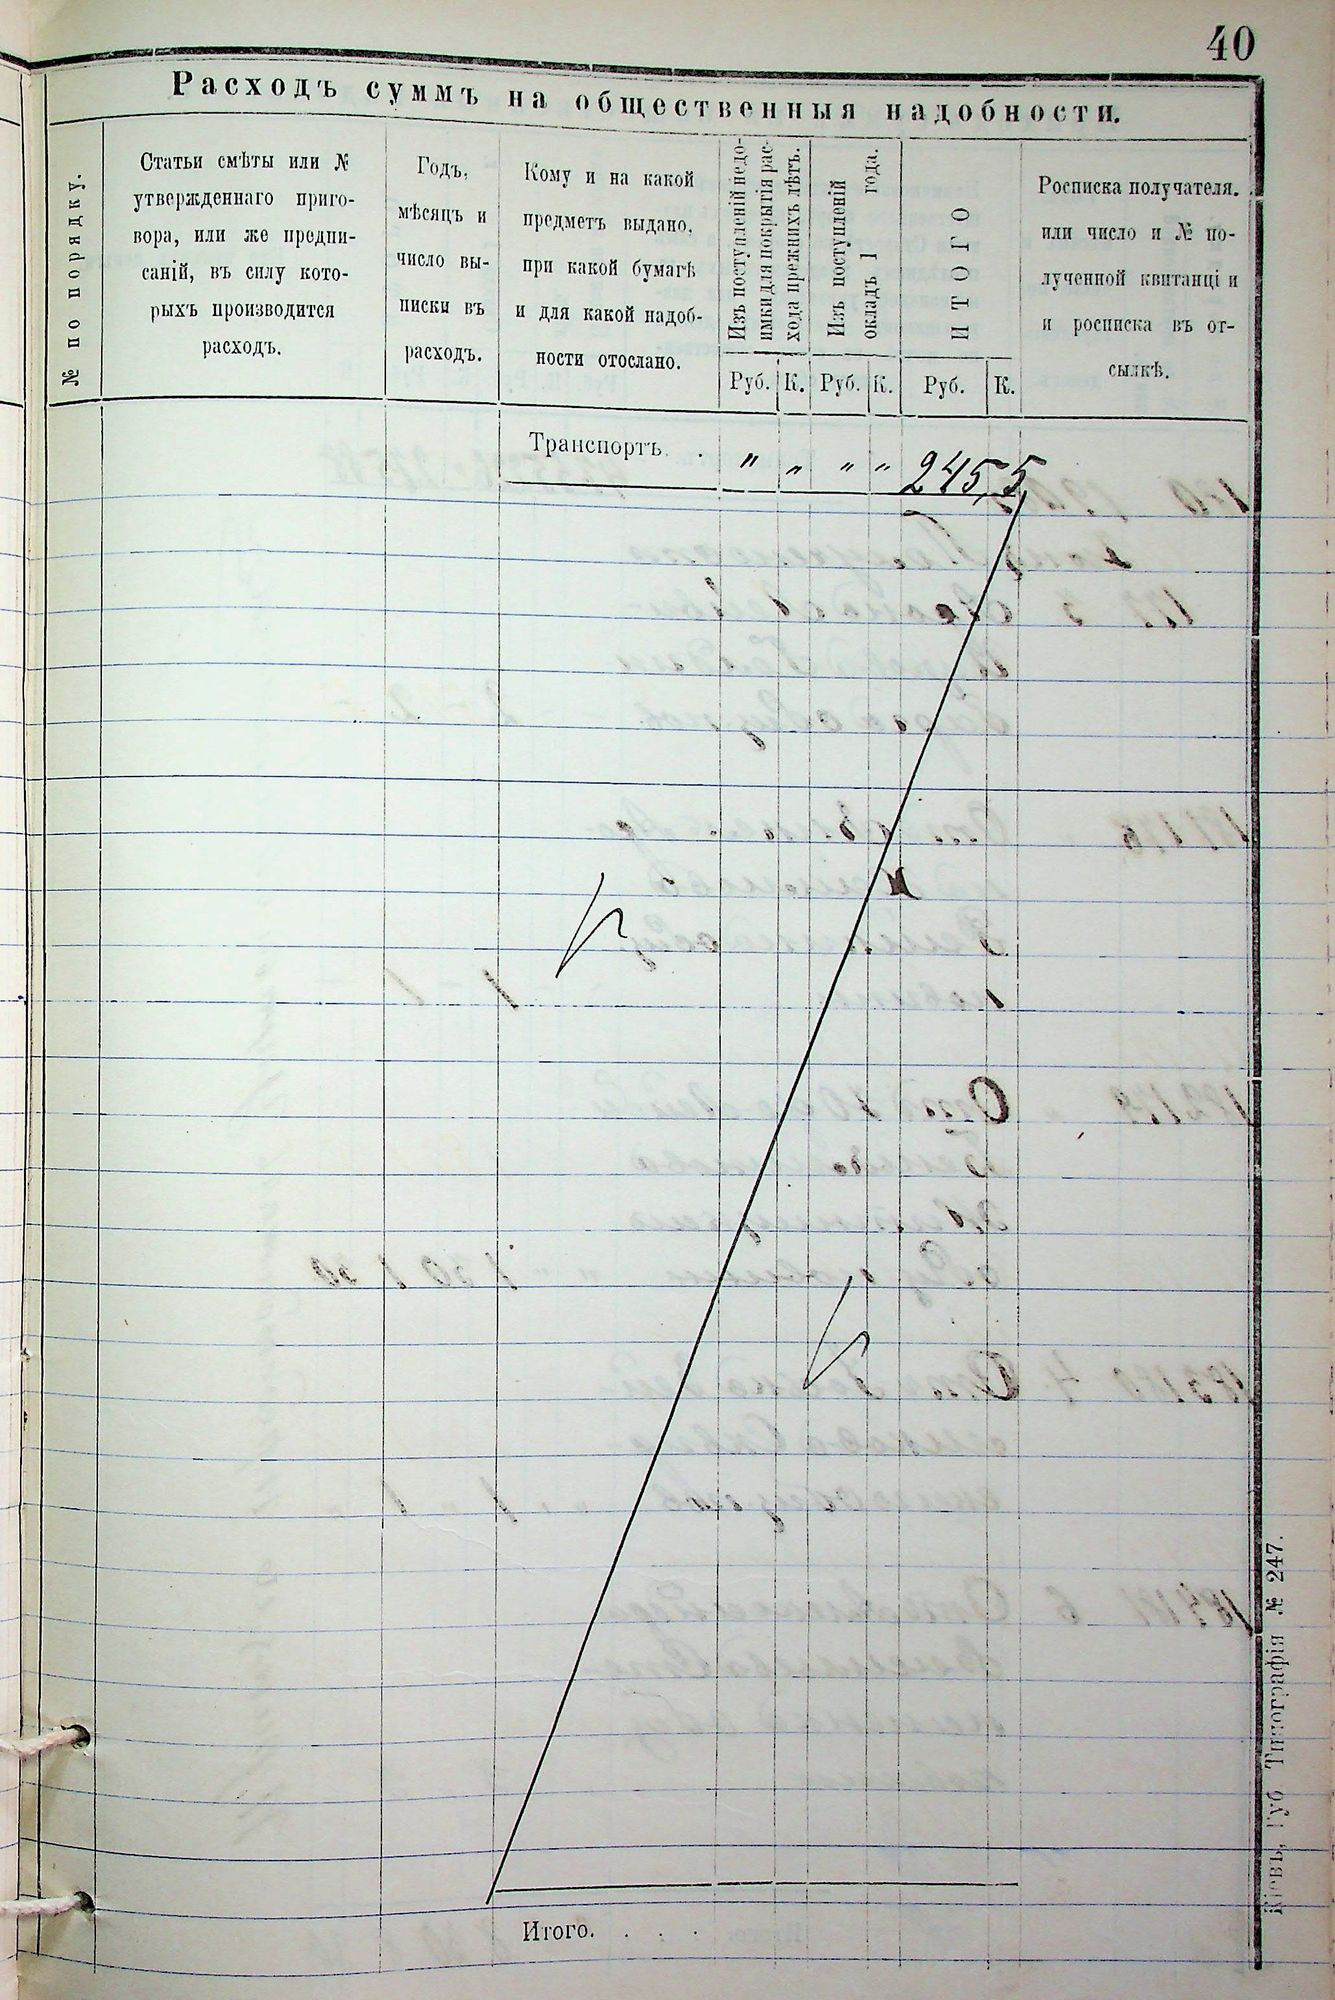 40
Расходъ суммъ на общественныя надобности.
№ по порядку.
Статьи смѣты или №
утвержденнаго приго-
вора, или же предпи-
саній, въ силу кото-
рыхъ производится
расходъ.
Годъ,
мѣсяцъ и
число вы-
писки въ
расходъ.
Кому и на какой
предметъ выдано,
при какой бумагѣ
и для какой надоб-
ности отослано.
Изъ поступленій недо-
имки для покрытія рас-
хода прежнихъ лѣтъ.
Изъ поступленій
окладъ 1 года.
ИТОГО
Росписка получателя.
или число и № по-
лученной квитанціи
и росписка въ от-
сылкѣ.
Руб. К. Руб. К. Руб. К.
Транспортъ. . " " " " 245, 5
Итого. . . .
Кіевъ, Губ Типографія № 247.